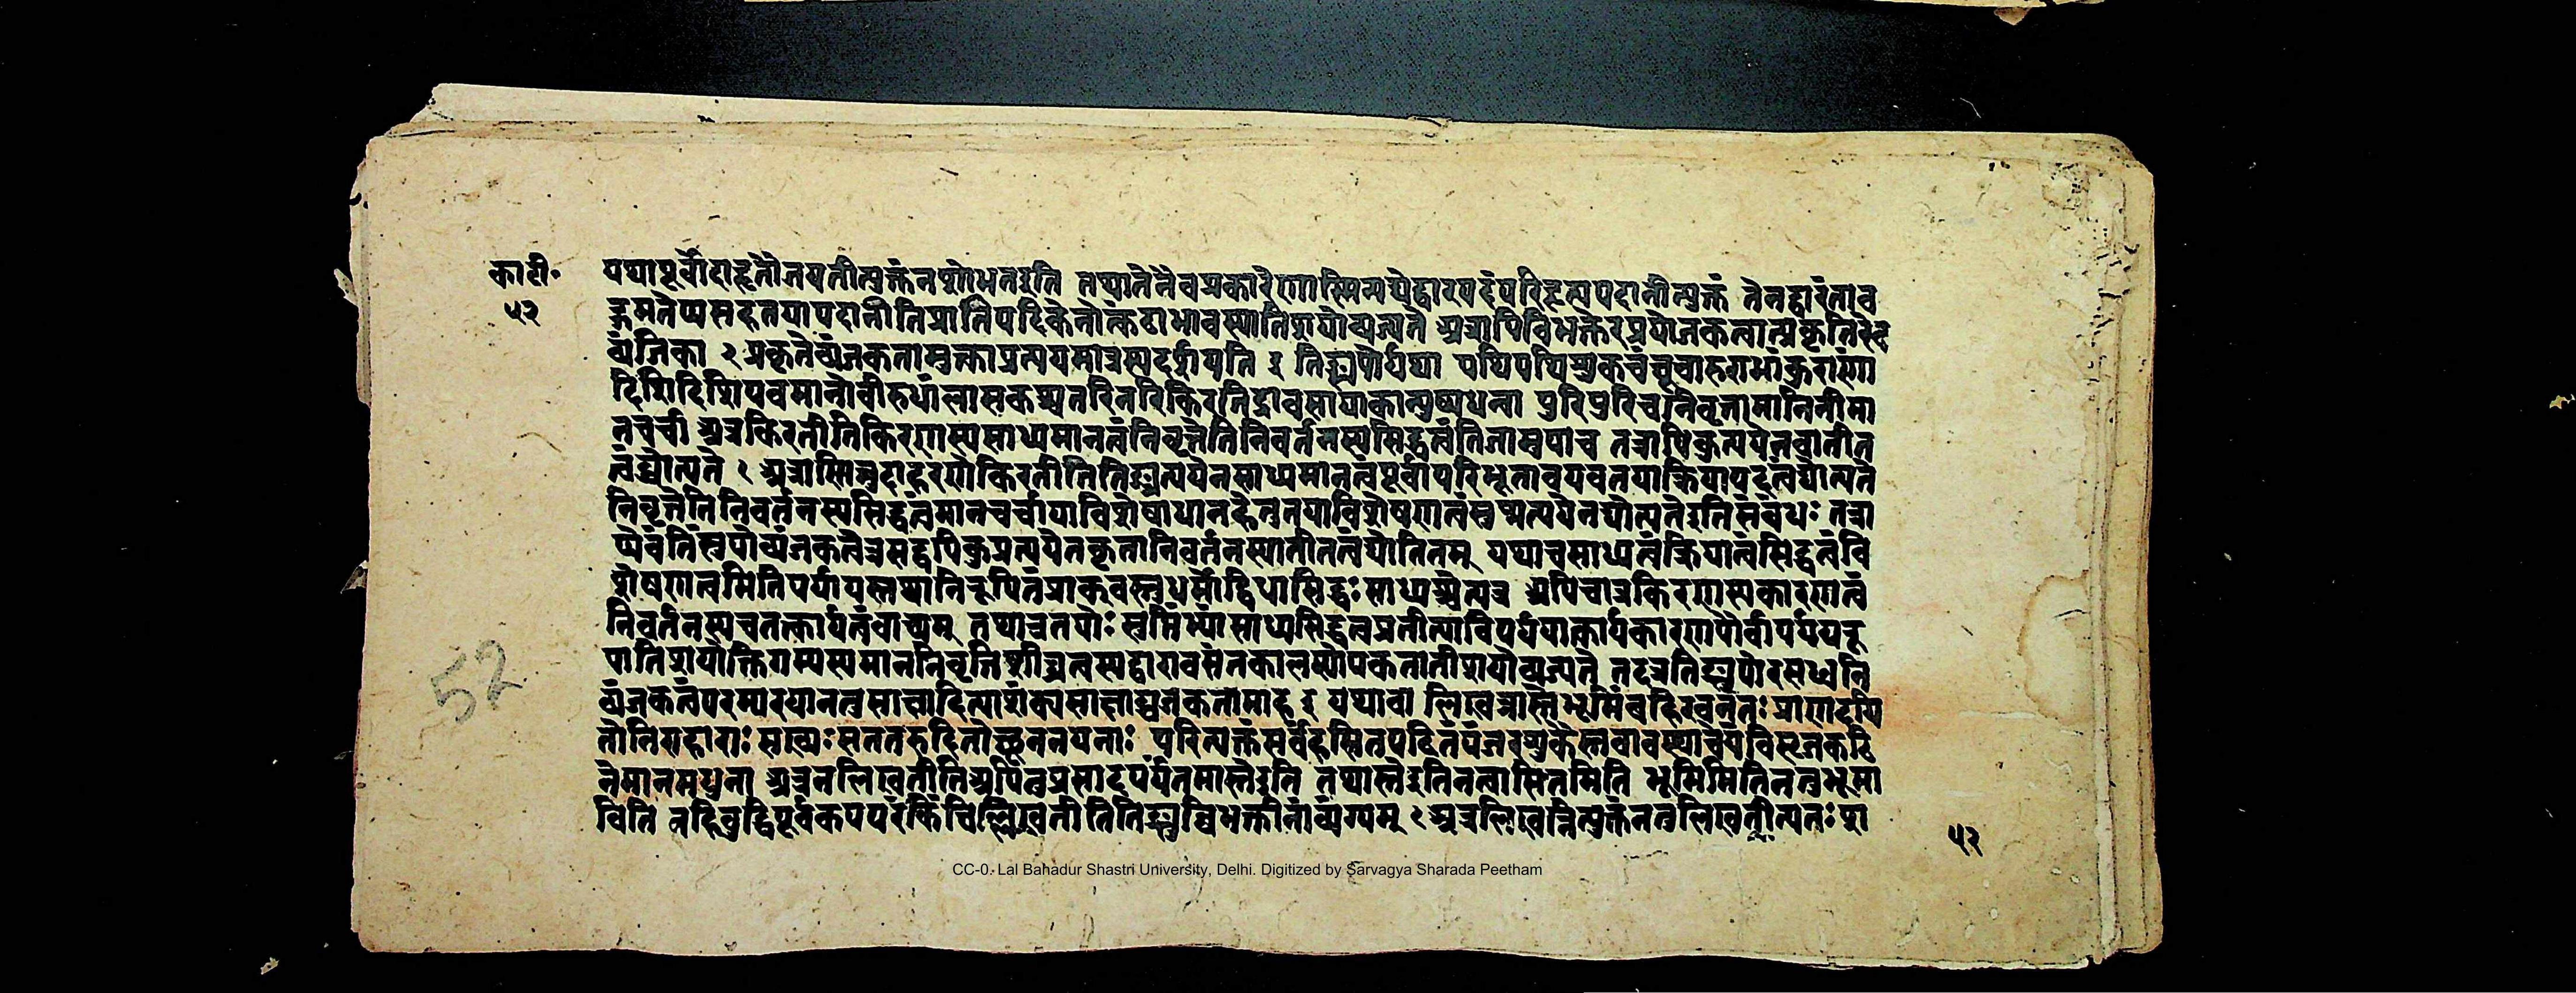 का टी॰
५२
यथापूर्वोदाहृतौनयतीत्युक्तंनपुरोभनइति तथातेनैवप्रकारेणास्मिन्मद्येद्वारपदंपरिहृत्यपदानीत्युक्तं तेनद्वारंताव
द्गमतेप्यसहतयापदानीतिप्रातिपदिकेनोत्कटाभावस्यातिशयोव्यज्यते अत्रापिविभक्तेरप्रयोजकत्वात्प्रकृतिरेव
व्यंजिका २ प्रकृतेर्व्यंजकतामुक्ताप्रत्ययमात्रस्यदर्शयति इ तिङ्सुपोर्यथा पथिपथिशुकचंचूचारुराभांकुराणां
दिशिदिशिपवमानोवीरुधांलासकश्च नरिनरिकिरतिद्राक्सायकान्पुष्पधन्वा पुरिपुरिचनिवृत्तामानिनीमा
नचर्चा अत्रकिरतीतिकिरणस्यसाध्यमानत्वंनिवृत्तेतिनिवर्तनस्यसिद्धत्वंतिङासुपाच तत्रापिक्तप्रत्ययेनचातीत
त्वंद्योत्यते १ अत्रास्मिन्नुदाहरणेकिरतीतितिङ्प्रत्ययेनसाध्यमानत्वंपूर्वापरिभूतावयवतयाक्रियापदत्वंद्योत्यते
निवृत्तेतिनिवर्तनस्यसिद्धत्वंमानचर्चायाविशेषाधानहेतुतयाविशेषणत्वंसुप्प्रत्ययेनद्योत्यतेइतिसंबंधः तत्रा
प्येवंतिङ्सुपोर्व्यंजकत्वेत्रसद्यपिक्तप्रत्ययेनकृतानिवर्तनस्यातीतत्वंद्योतितम् यथाचसाध्यत्वंक्रियात्वंसिद्धत्वंवि
शेषणत्वमितिपर्यायस्तथानिरूपितंप्राक्वस्तुधर्मोद्विधासिद्धःसाध्यश्चेत्यत्र अपिचात्रकिरणस्यकारणत्वं
निवर्तनस्यचतत्कार्यत्वंवाच्यम् तथात्रतयोः सुप्तिङ्भ्यांसाध्यसिद्धत्वप्रतीत्याविपर्ययात्कार्यकारणपौर्वापर्ययरू
पातिशयोक्तिगम्यस्यमाननिवृत्तिशीघ्रत्वस्यद्वारावसंतकालस्योपकतातीशयोव्यज्यते तदत्रतिङ्सुपोरसध्वनि
व्यंजकत्वंपरम्परयानतुसाक्षादित्याशंक्यसाक्षाद्व्यंजकतामाह इ यथावा लिखन्नास्तेभूमिंबहिरवनतः प्राणदयि
तोनिराहाराः सख्यःसततरुदितोच्छूननयनाः परित्यक्तंसर्वंहसितपठितंपंजरशुकैस्तवावस्थाचेयंविसृजकठि
नेमानमधुना अत्रनलिखतीतिअपितुप्रसादपर्यंतमास्तेइति तथास्तेइतिनत्वासितमिति भूमिमितिनतुभूमा
विति नहिबुद्धिपूर्वकमपरंकिंचिल्लिखतीतितिङ्सुब्विभक्तीनांव्यंग्यम् १ अत्रलिखन्नित्युक्तंनतुलिखतीत्यतः शा
५२
52
CC-0. Lal Bahadur Shastri University, Delhi. Digitized by Sarvagya Sharada Peetham